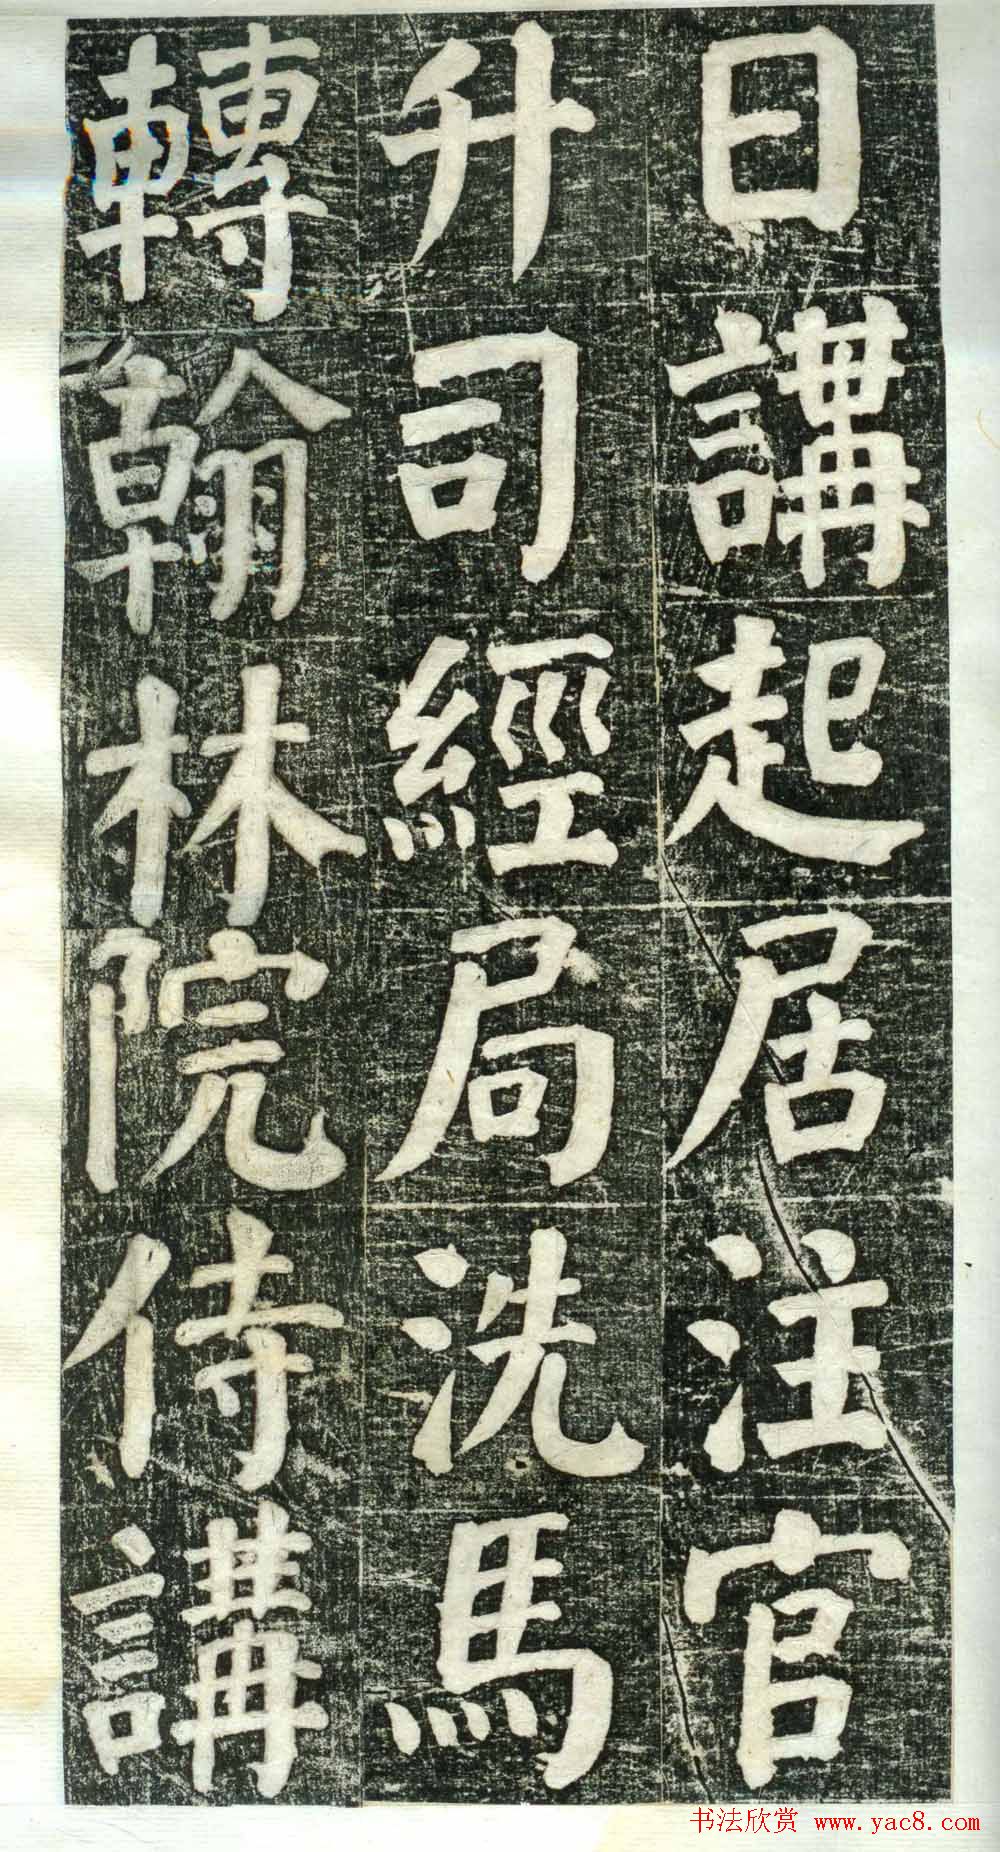 日講起居注官
升司經局洗馬
轉翰林院侍講
书法欣赏 www.yac8.com